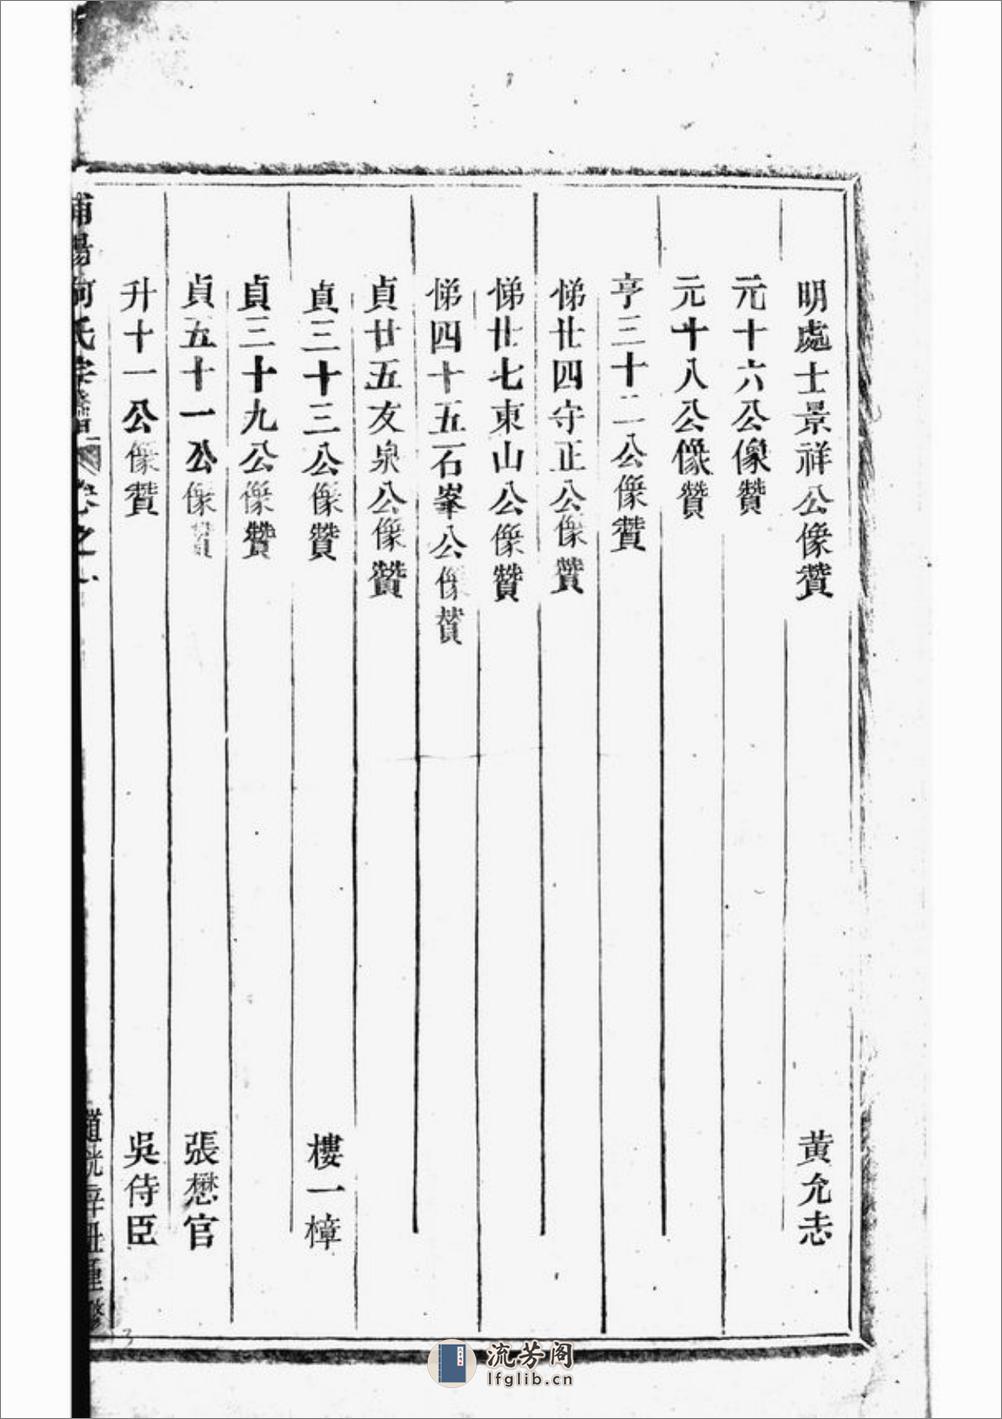 明處士景祥公像贊 黃允志
元十六公像贊
元十八公像贊
亨三十二公像贊
悌廿四守正公像贊
悌廿七東山公像贊
悌四十五石峯公像贊
貞廿五友泉公像贊
貞三十三公像贊 樓一樟
貞三十九公像贊
貞五十一公像贊 張懋官
升十一公像贊 吳侍臣
浦陽何氏宗譜 卷之 道光辛丑重修
3
流芳阁
lfglib.cn